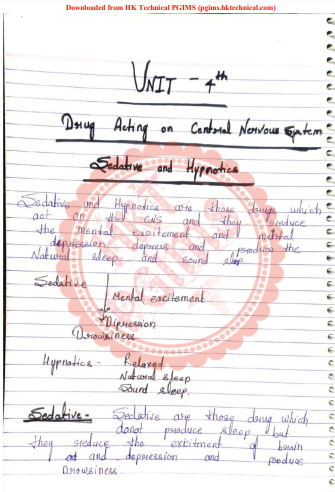 Downloaded from HK Technical PGIMS (pgims.hktechnical.com)
UNIT - 4th
Drug Acting on Central Nervous System
Sedative and Hypnotics
Sedative and Hypnotics are those drugs which
act on the CNS and they reduce
the mental excitement and mental
depression depress and produce the
Natural sleep and sound sleep
Sedative
Mental excitement
Dipression
Drowsiness
Hypnotics - Relaxed
Natural sleep
Sound sleep.
Sedative - Sedative are those drug which
donot produce sleep but
they reduce the exbitment of brain
and depression and produce
Drowsiness.